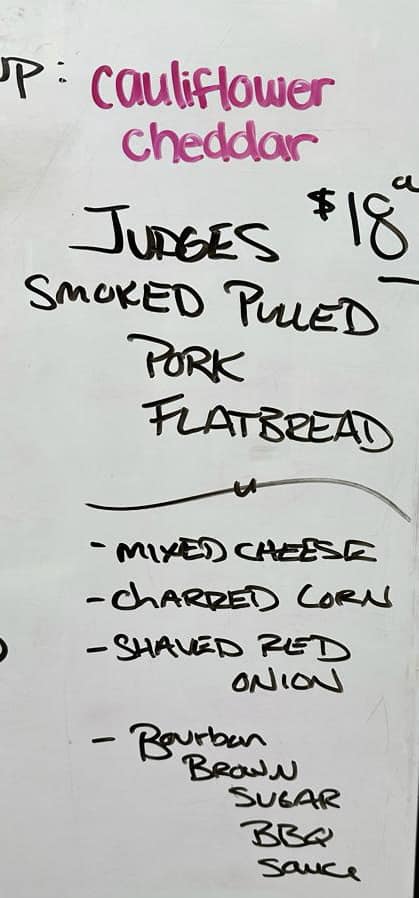 UP: cauliflower
cheddar
$18
JUDGES
SMOKED PULLED
PORK
FLATBREAD
- MIXED CHEESE
- CHARRED CORN
- SHAVED RED
ONION
- Bourbon
BROWN
SUGAR
BBQ
Sauce